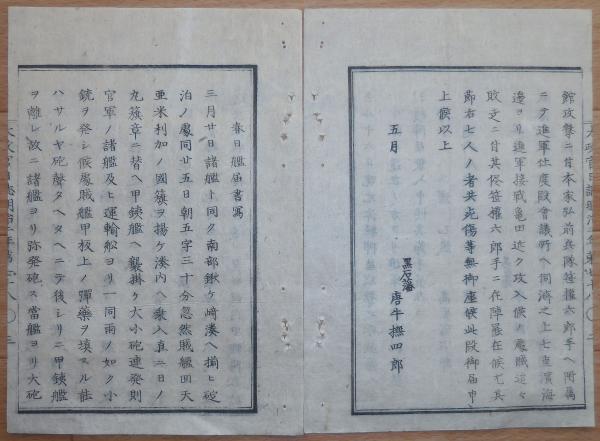 館攻撃ニ付本家弘前兵隊笹権六郎手ヘ附属
ニテ進軍仕度段會議所ヘ伺済之上七重濱海
邊ヨリ進軍接戰亀田迄攻入候ノ處賊追々
敗走ニ付其侭笹権六郎手ニ在陣罷在候尤其
節右七人ノ者共死傷等無御座候此段御届申
上候以上
五月
黒石藩
唐牛撫四郎
春日艦届書寫
三月廿日諸艦ト同ク南部鍬ケ﨑湊ヘ揃ヒ碇
泊ノ處同廿五日朝五字三十分忽然賊艦回天
亜米利加ノ國籏ヲ揚ケ湊内ヘ乗入直ニ日ノ
丸籏章ニ替ヘ甲鉄艦ヘ襲掛ケ大小砲連発則
官軍ノ諸艦及ヒ運輸舩ヨリ一同雨ノ如ク小
銃ヲ発シ候處賊艦甲板上ノ彈藥ヲ填スル能
ハサルヤ砲聲タヘタヘニテ後シリニ甲鉄艦
ヲ離レ故ニ諸艦ヨリ弥発砲ス當艦ヨリ大砲